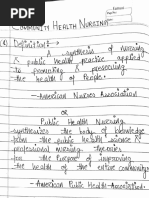 COMMUNITY HEALTH NURSING
(4) Definition :- →
A synthesis of nursing
& public health practice applied
to promoting & preserving
the health of People.
- American Nurses Association
OR
Public Health Nursing
synthesizes the body of knowledge
from the public health science &
professional nursing theories
for the purpose of improving
the health of the entire community
- American Public Health Association.